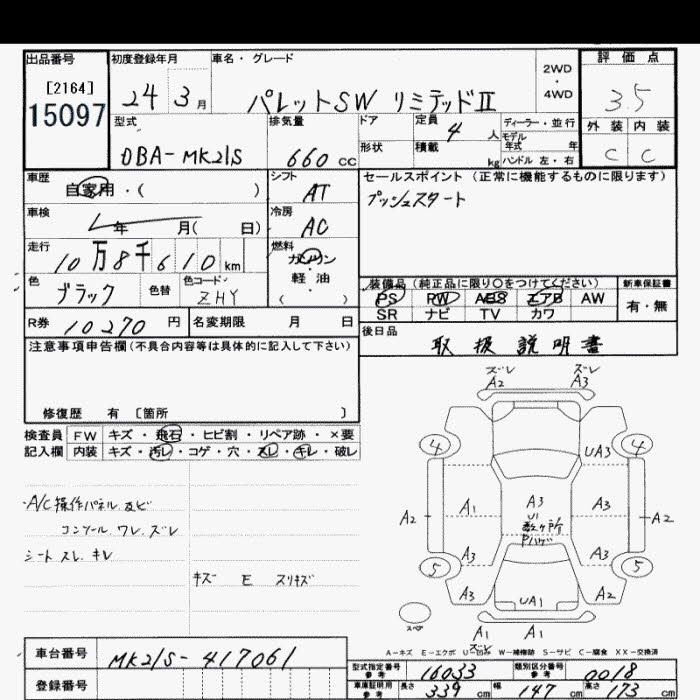 出品番号 初度登録年月 車名・グレード 評価点
[2164]
15097
24 3月 パレットSW リミテッドⅡ 2WD・4WD 3.5
型式 排気量 ドア 定員 4人 ディーラー・並行 外装 内装
DBA-MK21S 660cc 形状 積載 kg モデル年式 年 ハンドル 左・右 C C
車歴 自家用・( ) シフト AT セールスポイント (正常に機能するものに限ります)
プッシュスタート
車検 年 月( 日) 冷房 AC
走行 10万8千610km 燃料 ガソリン
軽・油
( )
色 ブラック 色替 色コード ZHY
装備品 (純正品に限り〇をつけてください) 新車保証書
PS PW ABS エアB AW 有・無
SR ナビ TV カワ
R券 10270円 名変期限 月 日 後日品
取扱説明書
注意事項申告欄(不具合内容等は具体的に記入して下さい)
修復歴 有 〔箇所 〕
検査員 FW キズ・飛石・ヒビ割・リペア跡・×要
記入欄 内装 キズ・汚レ・コゲ・穴・スレ・キレ・破レ
・A/C操作パネル及ビ
コンソール ワレ.ズレ
シート スレ.キレ
キズ E スリキズ
ズレ ズレ
A2 A3
4 UA3 4
A1 A3 A3
U1
A2 数ヶ所 A2
Pハゲ
A3 A3
5 5
A3 UA1 A2
スペア A1 A1
ズレ
A-キズ E-エクボ U-凹み W-補修跡 S-サビ C-腐食 XX-交換済
車台番号 MK21S-417061
登録番号
型式指定番号 参考 16033 類別区分番号 参考 0018
車庫証明用 参考 長さ 339cm 幅 147cm 高さ 173cm